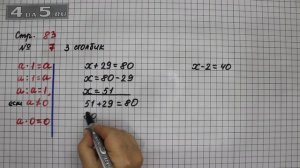 4 на 5.ru
Стр. 83
№ 7 3 столбик
a·1=a
a:1=a
a:a=1,
если a≠0
a·0=0
x+29=80
x=80-29
x=51
51+29=80
x-2=40